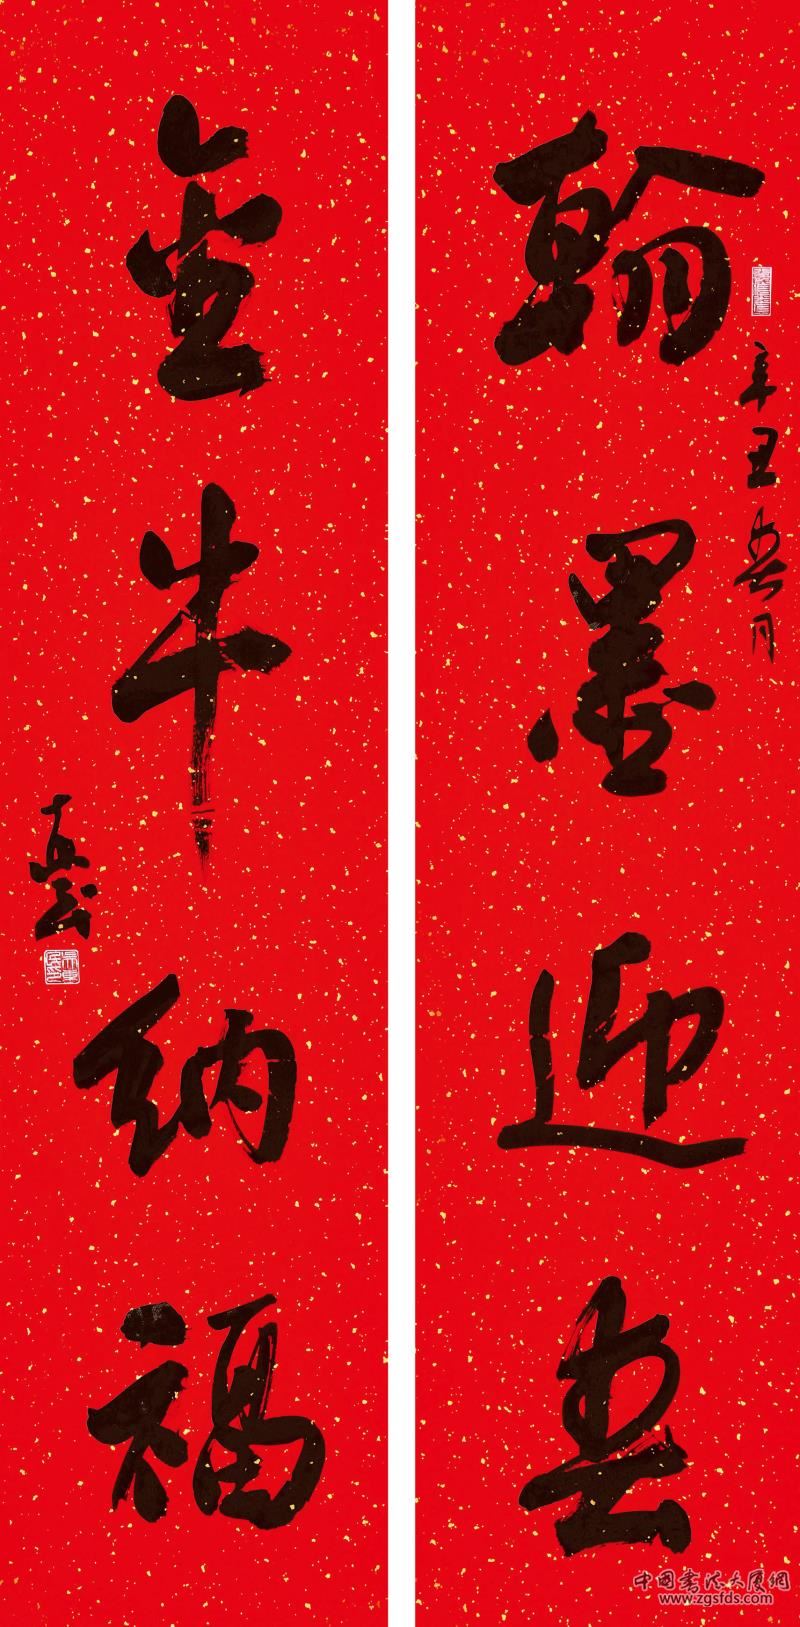 翰墨迎春
辛丑春月
金牛纳福
中国书法大厦网
www.zgsfds.com